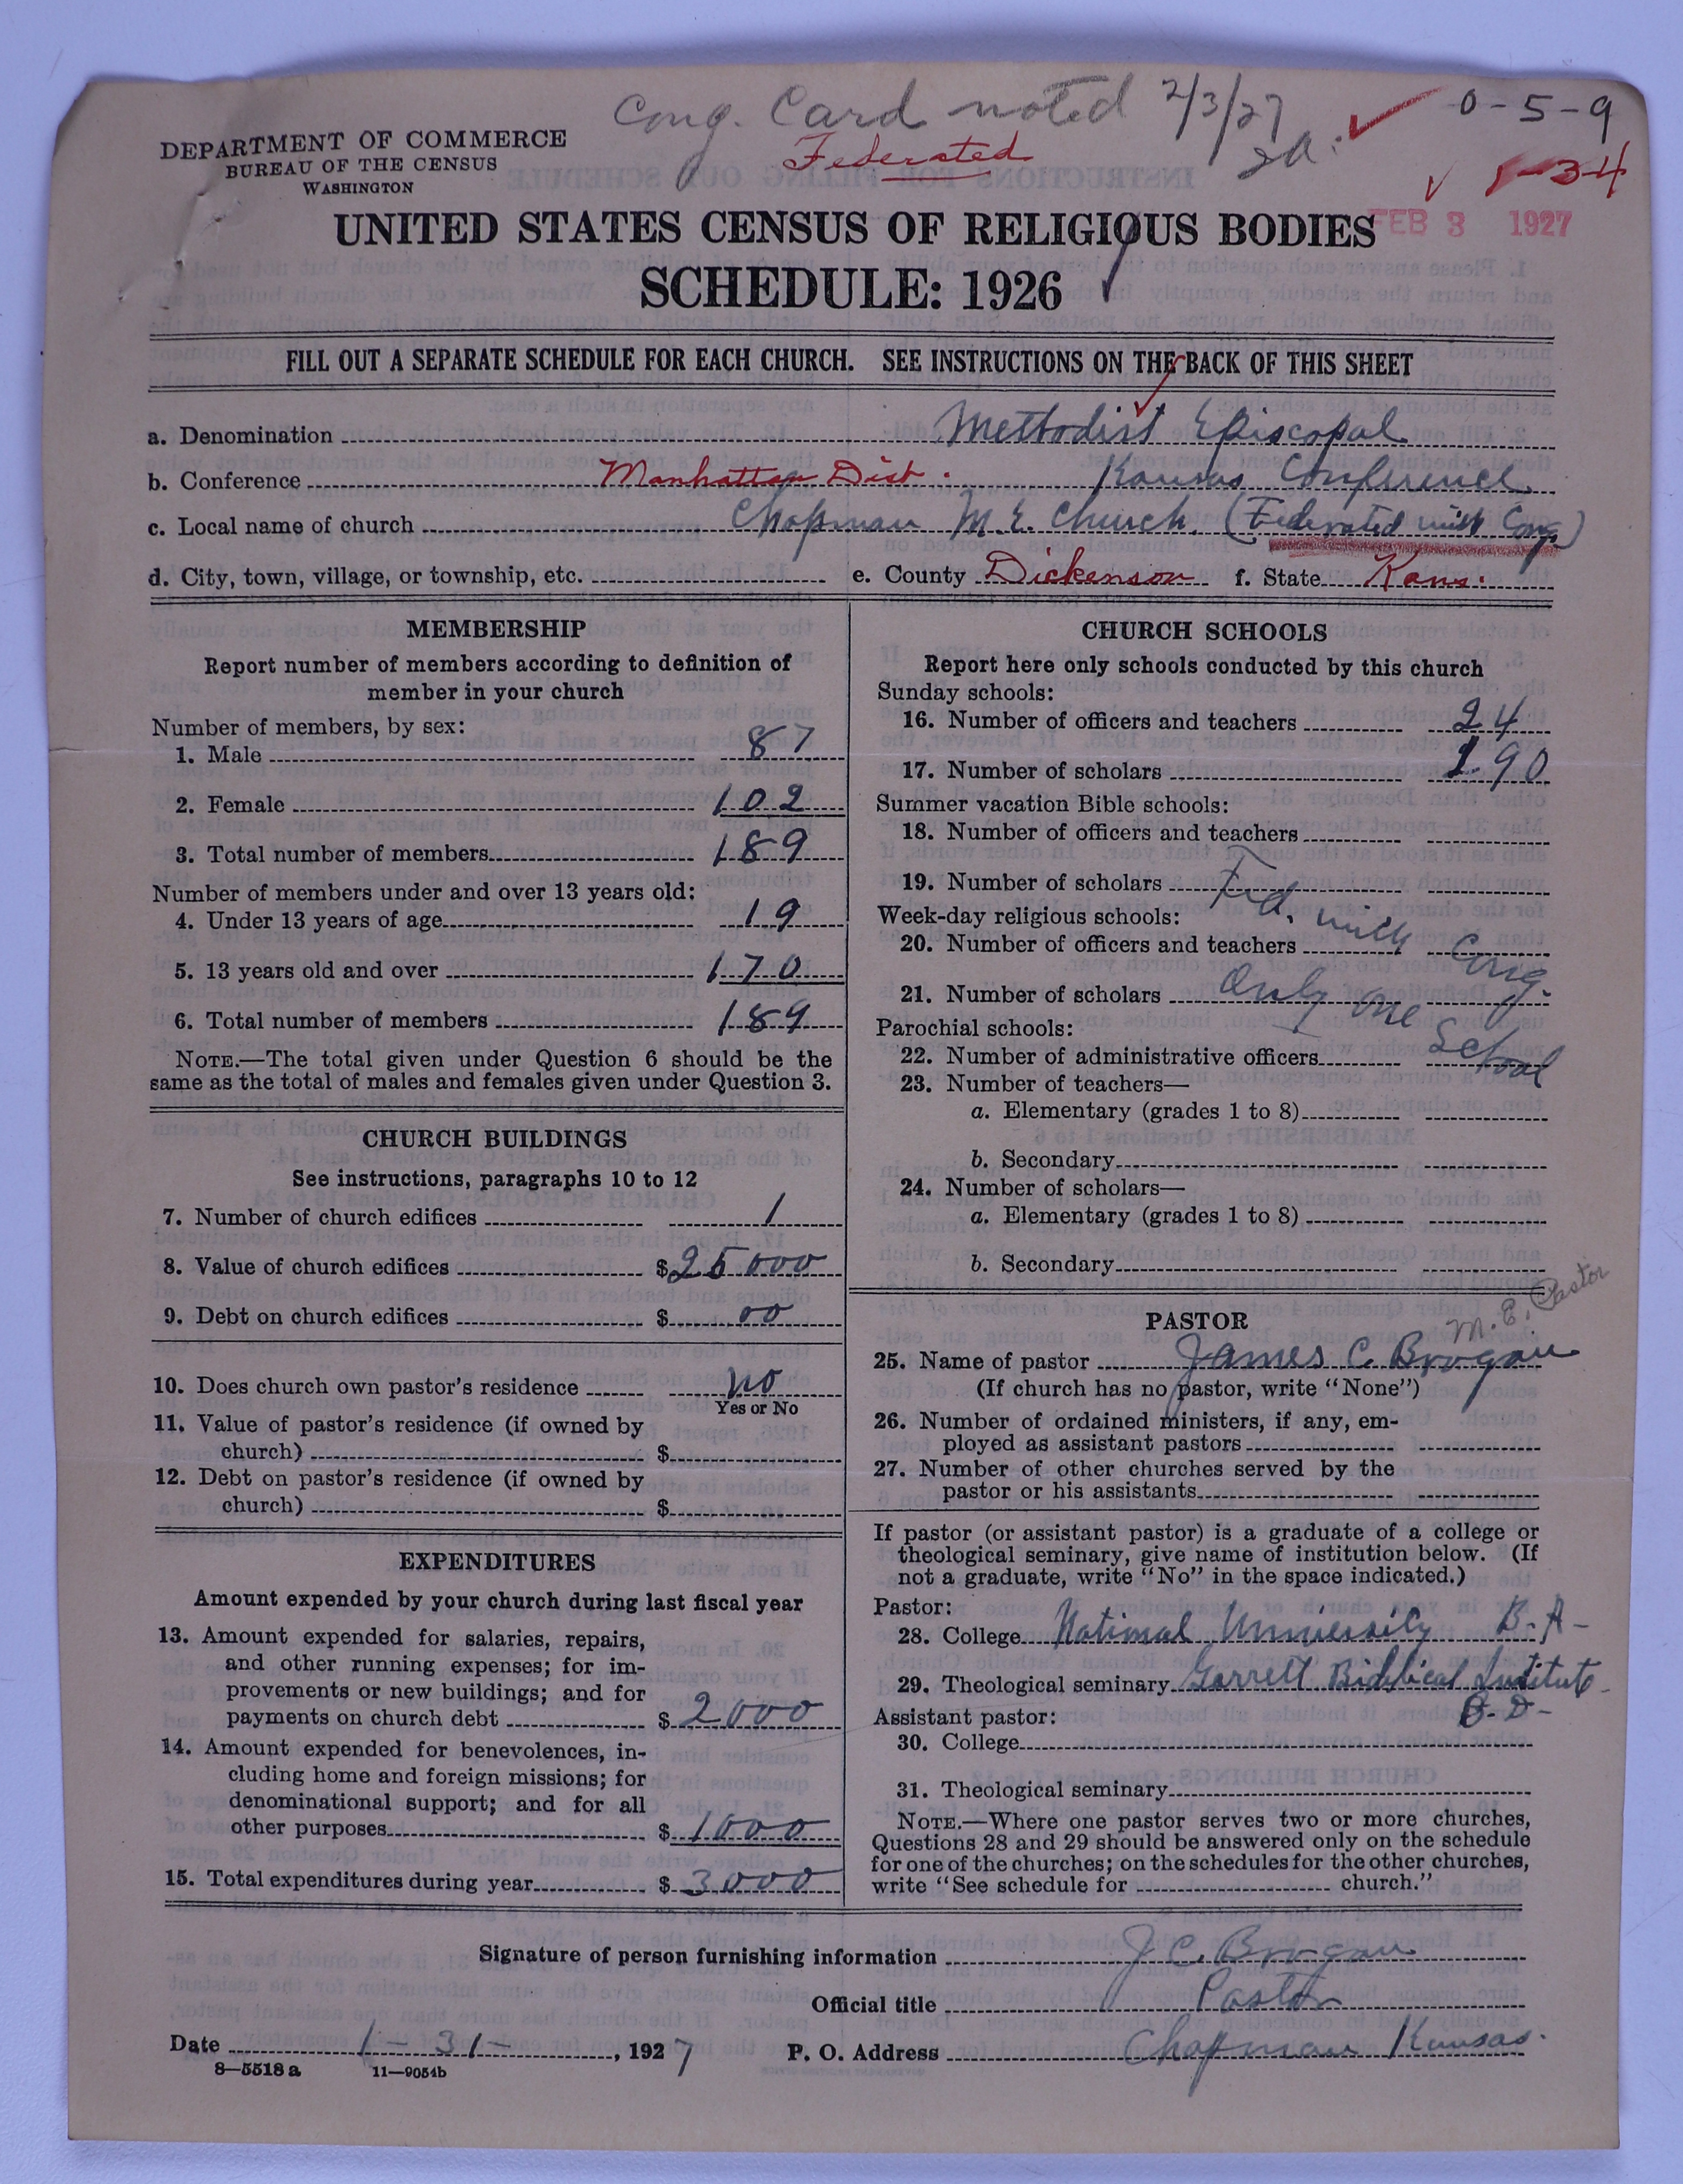 Cong. Card noted 2/3/27
0-5-9
DEPARTMENT OF COMMERCE
BUREAU OF THE CENSUS
WASHINGTON
Federated
1-34
FEB 3 1927
UNITED STATES CENSUS OF RELIGIOUS BODIES
SCHEDULE: 1926
FILL OUT A SEPARATE SCHEDULE FOR EACH CHURCH. SEE INSTRUCTIONS ON THE BACK OF THIS SHEET
a. Denomination Methodist Episcopal
b. Conference Manhattan Dist. Kansas Conference
c. Local name of church Chapman M.E. Church (Federated with Cong)
d. City, town, village, or township, etc. e. County Dickenson f. State Kans.
MEMBERSHIP
Report number of members according to definition of
member in your church
Number of members, by sex:
1. Male 87
2. Female 102
3. Total number of members 189
Number of members under and over 13 years old:
4. Under 13 years of age 19
5. 13 years old and over 170
6. Total number of members 189
NOTE.—The total given under Question 6 should be the
same as the total of males and females given under Question 3.
CHURCH BUILDINGS
See instructions, paragraphs 10 to 12
7. Number of church edifices 1
8. Value of church edifices $25000
9. Debt on church edifices $ 00
10. Does church own pastor's residence no
Yes or No
11. Value of pastor's residence (if owned by
church) $
12. Debt on pastor's residence (if owned by
church) $
EXPENDITURES
Amount expended by your church during last fiscal year
13. Amount expended for salaries, repairs,
and other running expenses; for im-
provements or new buildings; and for
payments on church debt $ 2000
14. Amount expended for benevolences, in-
cluding home and foreign missions; for
denominational support; and for all
other purposes $ 1000
15. Total expenditures during year $ 3000
CHURCH SCHOOLS
Report here only schools conducted by this church
Sunday schools:
16. Number of officers and teachers 24
17. Number of scholars 190
Summer vacation Bible schools:
18. Number of officers and teachers
19. Number of scholars Fed. with Cong.
Week-day religious schools:
20. Number of officers and teachers
21. Number of scholars Only one School
Parochial schools:
22. Number of administrative officers
23. Number of teachers—
a. Elementary (grades 1 to 8)
b. Secondary
24. Number of scholars—
a. Elementary (grades 1 to 8)
b. Secondary
PASTOR M.E. Pastor
25. Name of pastor James C. Brogan
(If church has no pastor, write "None")
26. Number of ordained ministers, if any, em-
ployed as assistant pastors
27. Number of other churches served by the
pastor or his assistants
If pastor (or assistant pastor) is a graduate of a college or
theological seminary, give name of institution below. (If
not a graduate, write "No" in the space indicated.)
Pastor:
28. College National University B.A-
29. Theological seminary Garrett Biblical Institute
B.D-
Assistant pastor:
30. College
31. Theological seminary
NOTE.—Where one pastor serves two or more churches,
Questions 28 and 29 should be answered only on the schedule
for one of the churches; on the schedules for the other churches,
write "See schedule for church."
Signature of person furnishing information J.C. Brogan
Official title Pastor
Date 1-31-, 1927 P. O. Address Chapman Kansas.
8—5518a 11—9054b